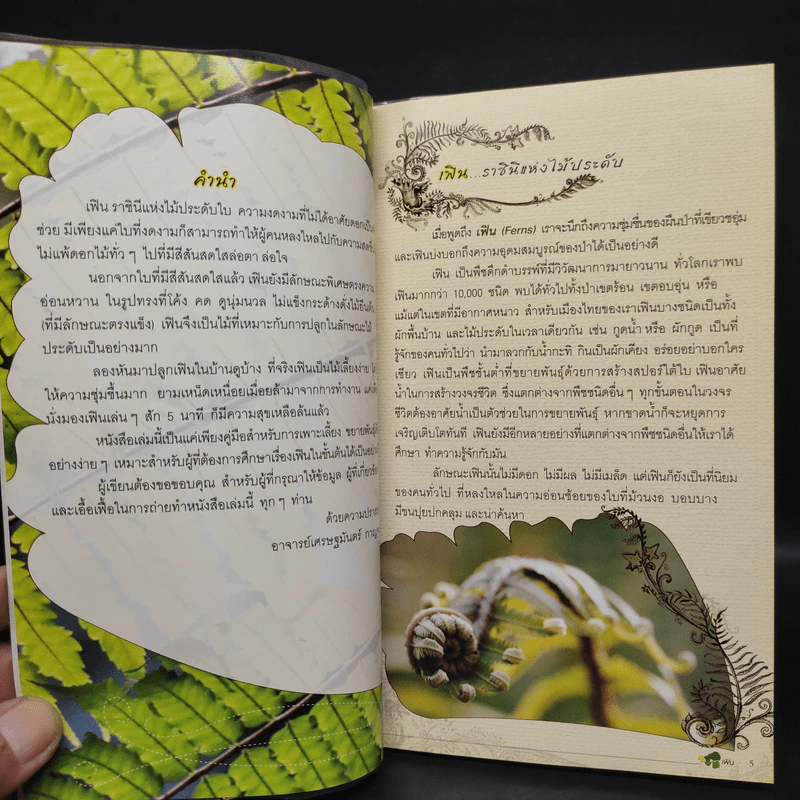 คำนำ
เฟิน ราชินีแห่งไม้ประดับใบ ความงดงามที่ไม่ได้อาศัยดอกเป็น
ช่วย มีเพียงแค่ใบที่งดงามก็สามารถทำให้ผู้คนหลงใหลไปกับความสดชื่น
ไม่แพ้ดอกไม้ทั่ว ๆ ไปที่มีสีสันสดใสล่อตา ล่อใจ
นอกจากใบที่มีสีสันสดใสแล้ว เฟินยังมีลักษณะพิเศษตรงความ
อ่อนหวาน ในรูปทรงที่โค้ง คด ดูนุ่มนวล ไม่แข็งกระด้างดั่งไม้ยืนต้น
(ที่มีลักษณะตรงแข็ง) เฟินจึงเป็นไม้ที่เหมาะกับการปลูกในลักษณะไม้
ประดับเป็นอย่างมาก
ลองหันมาปลูกเฟินในบ้านดูบ้าง ที่จริงเฟินเป็นไม้เลี้ยงง่าย
ให้ความชุ่มชื้นมาก ยามเหน็ดเหนื่อยเมื่อยล้ามาจากการทำงาน แค่
นั่งมองเฟินเล่น ๆ สัก 5 นาที ก็มีความสุขเหลือล้นแล้ว
หนังสือเล่มนี้เป็นแค่เพียงคู่มือสำหรับการเพาะเลี้ยง ขยายพันธุ์
อย่างง่าย ๆ เหมาะสำหรับผู้ที่ต้องการศึกษาเรื่องเฟินในขั้นต้นได้เป็นอย่าง
ผู้เขียนต้องขอขอบคุณ สำหรับผู้ที่กรุณาให้ข้อมูล ผู้ที่เกี่ยวข้อง
และเอื้อเฟื้อในการถ่ายทำหนังสือเล่มนี้ ทุก ๆ ท่าน
ด้วยความปรารถ
อาจารย์เศรษฐมันตร์ กาญ
เฟิน...ราชินีแห่งไม้ประดับ
เมื่อพูดถึง เฟิน (Ferns) เราจะนึกถึงความชุ่มชื่นของผืนป่าที่เขียวชอุ่ม
และเฟินบ่งบอกถึงความอุดมสมบูรณ์ของป่าได้เป็นอย่างดี
เฟิน เป็นพืชดึกดำบรรพ์ที่มีวิวัฒนาการมายาวนาน ทั่วโลกเราพบ
เฟินมากกว่า 10,000 ชนิด พบได้ทั่วไปทั้งป่าเขตร้อน เขตอบอุ่น หรือ
แม้แต่ในเขตที่มีอากาศหนาว สำหรับเมืองไทยของเราเฟินบางชนิดเป็นทั้ง
ผักพื้นบ้าน และไม้ประดับในเวลาเดียวกัน เช่น กูดน้ำ หรือ ผักกูด เป็นที่
รู้จักของคนทั่วไปว่า นำมาลวกกับน้ำกะทิ กินเป็นผักเคียง อร่อยอย่าบอกใคร
เชียว เฟินเป็นพืชชั้นต่ำที่ขยายพันธุ์ด้วยการสร้างสปอร์ใต้ใบ เฟินอาศัย
น้ำในการสร้างวงจรชีวิต ซึ่งแตกต่างจากพืชชนิดอื่น ๆ ทุกขั้นตอนในวงจร
ชีวิตต้องอาศัยน้ำเป็นตัวช่วยในการขยายพันธุ์ หากขาดน้ำก็จะหยุดการ
เจริญเติบโตทันที เฟินยังมีอีกหลายอย่างที่แตกต่างจากพืชชนิดอื่นให้เราได้
ศึกษา ทำความรู้จักกับมัน
ลักษณะเฟินนั้นไม่มีดอก ไม่มีผล ไม่มีเมล็ด แต่เฟินก็ยังเป็นที่นิยม
ของคนทั่วไป ที่หลงใหลในความอ่อนช้อยของใบที่ม้วนงอ บอบบาง
มีขนปุยปกคลุม และน่าค้นหา
เฟิน 5